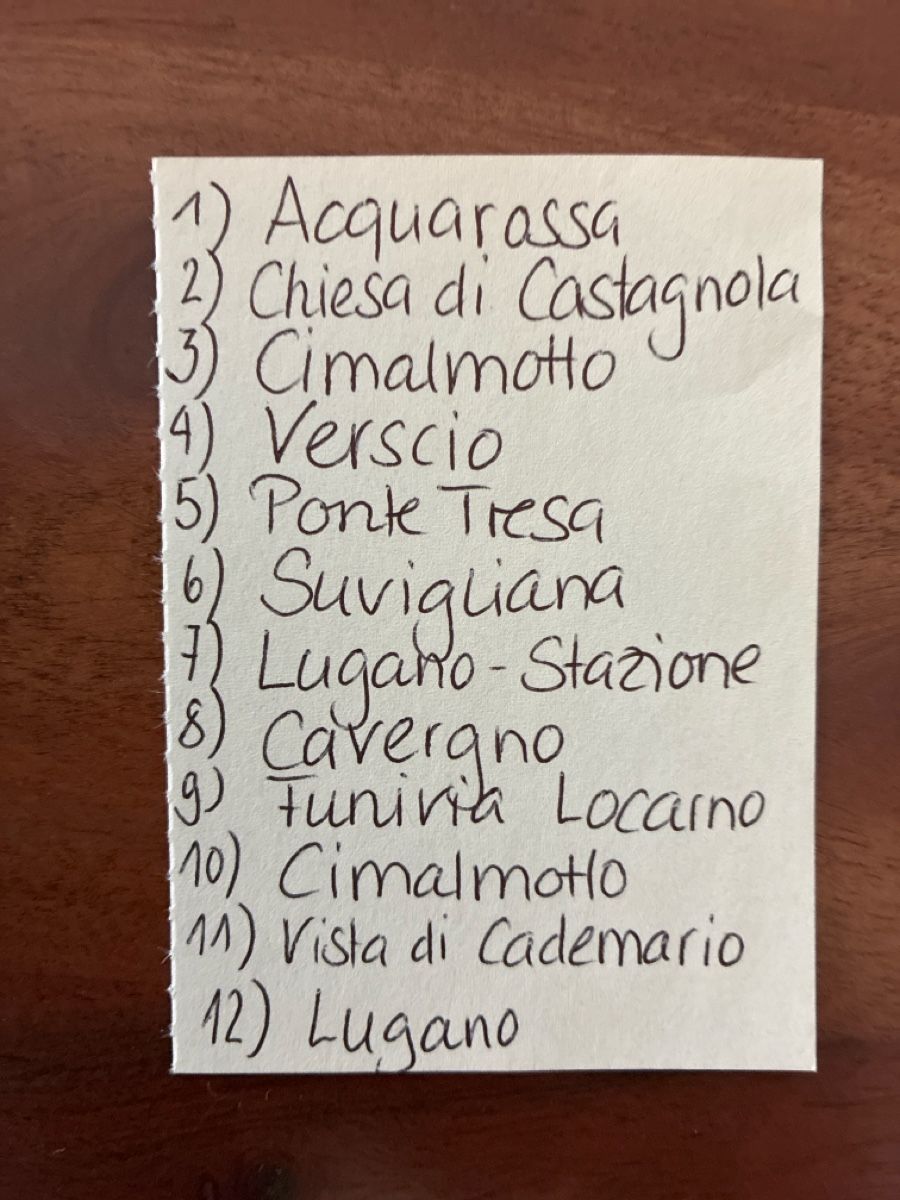 1) Acquarossa
2) Chiesa di Castagnola
3) Cimalmotto
4) Verscio
5) Ponte Tresa
6) Suvigliana
7) Lugano-Stazione
8) Cavergno
9) Funivia Locarno
10) Cimalmotto
11) Vista di Cademario
12) Lugano